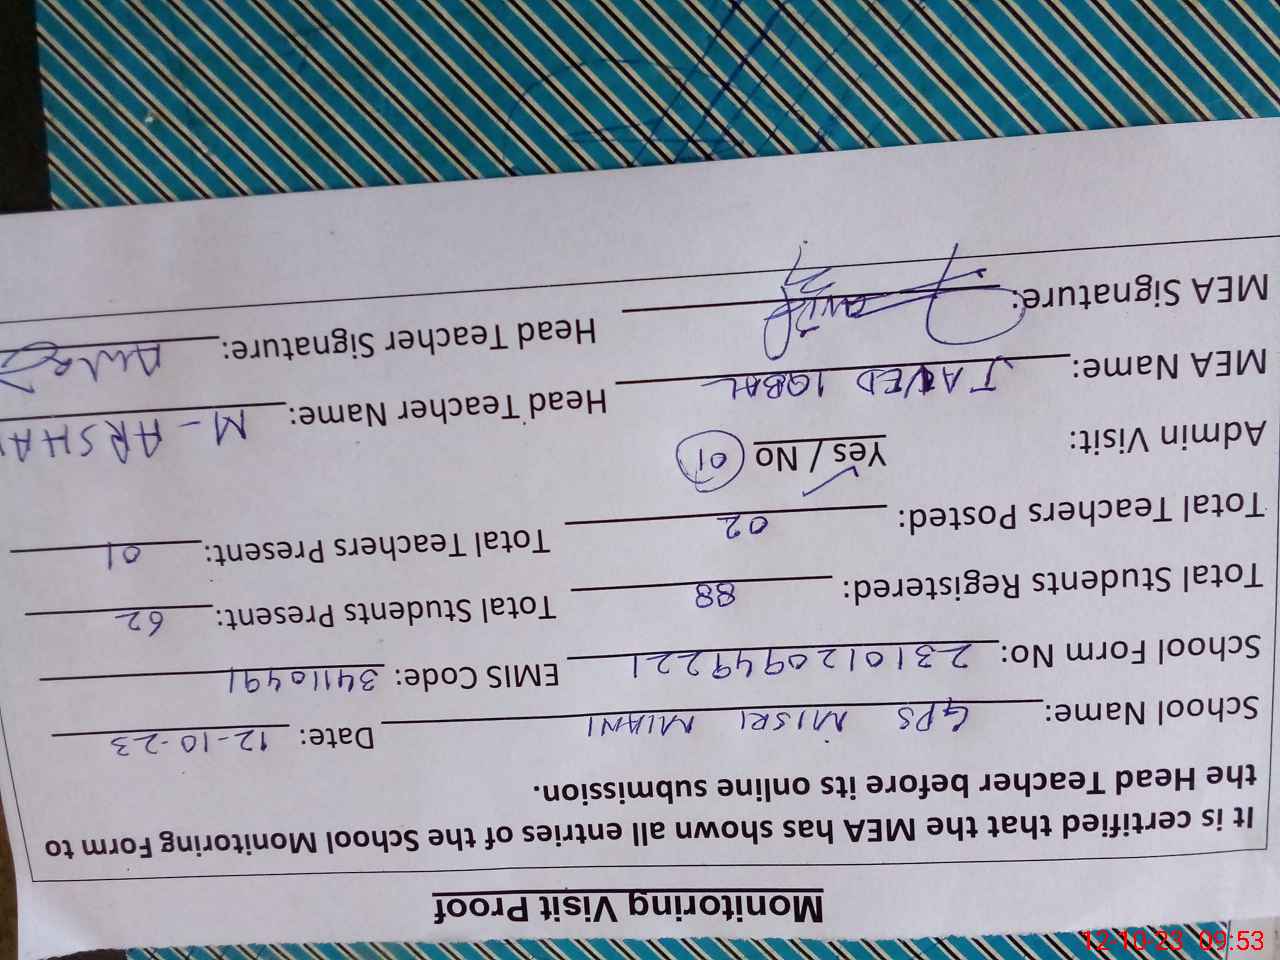 Monitoring Visit Proof
It is certified that the MEA has shown all entries of the School Monitoring Form to
the Head Teacher before its online submission.
School Name: GPS MISRI MIANI Date: 12-10-23
School Form No: 2310120949221 EMIS Code: 34110491
Total Students Registered: 88 Total Students Present: 62
Total Teachers Posted: 02 Total Teachers Present: 01
Admin Visit: Yes / No 01
MEA Name: JAVED IQBAL Head Teacher Name: M- ARSHA
MEA Signature: Head Teacher Signature:
12-10-23 09:53